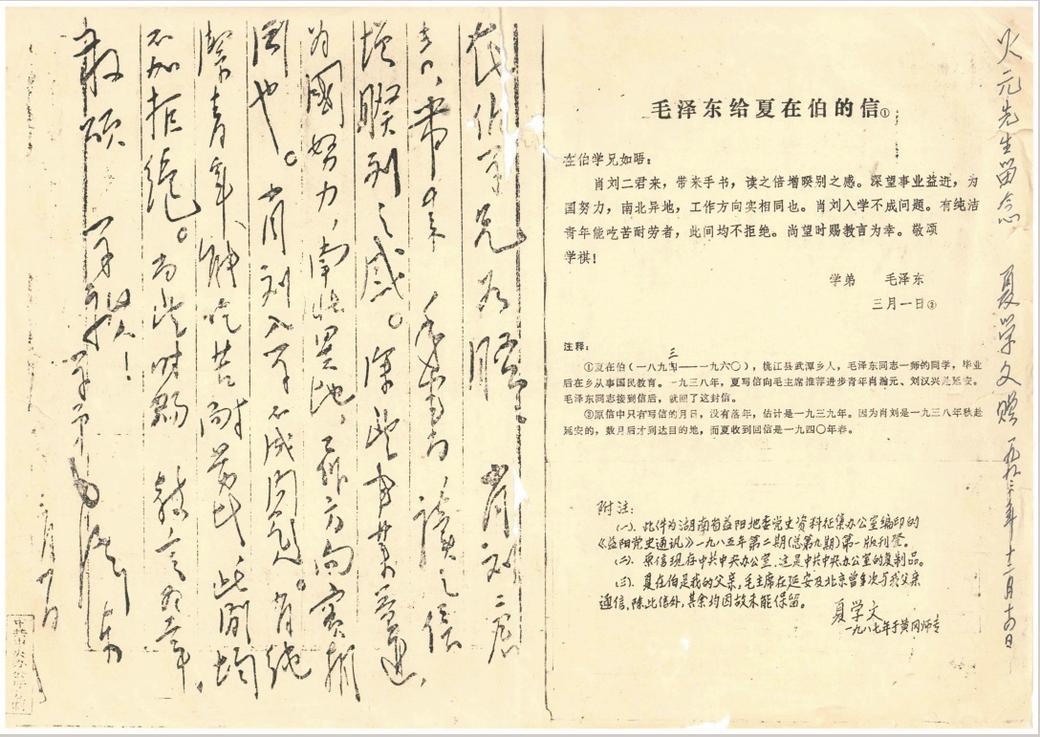 在伯学兄如晤。肖刘二君
来，带来手书，读之倍
增暌别之感。深望事业益进，
为國努力，南北异地，工作方向实相
同也。肖刘入学不成问题。有纯
洁青年能吃苦耐劳者，此间均
不加拒绝。尚望时赐教言为幸。
敬颂 学祺！学弟毛泽东
三月一日
毛泽东给夏在伯的信①
在伯学兄如晤：
肖刘二君来，带来手书，读之倍增暌别之感。深望事业益进，为
国努力，南北异地，工作方向实相同也。肖刘入学不成问题。有纯洁
青年能吃苦耐劳者，此间均不拒绝。尚望时赐教言为幸。敬项
学棋！
学弟 毛泽东
三月一日②
注释：
三
①夏在伯（一八九四——一九六〇），桃江县武潭乡人，毛泽东同志一师的同学，毕业
后在乡从事国民教育。一九三八年，夏写信向毛主席推荐进步青年肖瀚元、刘汉兴赴延安。
毛泽东同志接到信后，就回了这封信。
②原信中只有写信的月日，没有落年，估计是一九三九年。因为肖刘是一九三八年秋赴
延安的，数月后才到达目的地，而夏收到回信是一九四〇年春。
附注：
(一)、此件为湖南省益阳地委党史资料征集办公室编印的
《益阳党史通讯》一九八五年第二期(总第九期)第一版刊登。
(二)、原信现存中共中央办公室，这是中共中央办公室的复制品。
(三)、夏在伯是我的父亲，毛主席在延安及北京曾多次与我父亲
通信，除此信外，其余均因故未能保留。
夏学文
一九八七年于黄冈师专
火元先生留念 夏学文赠